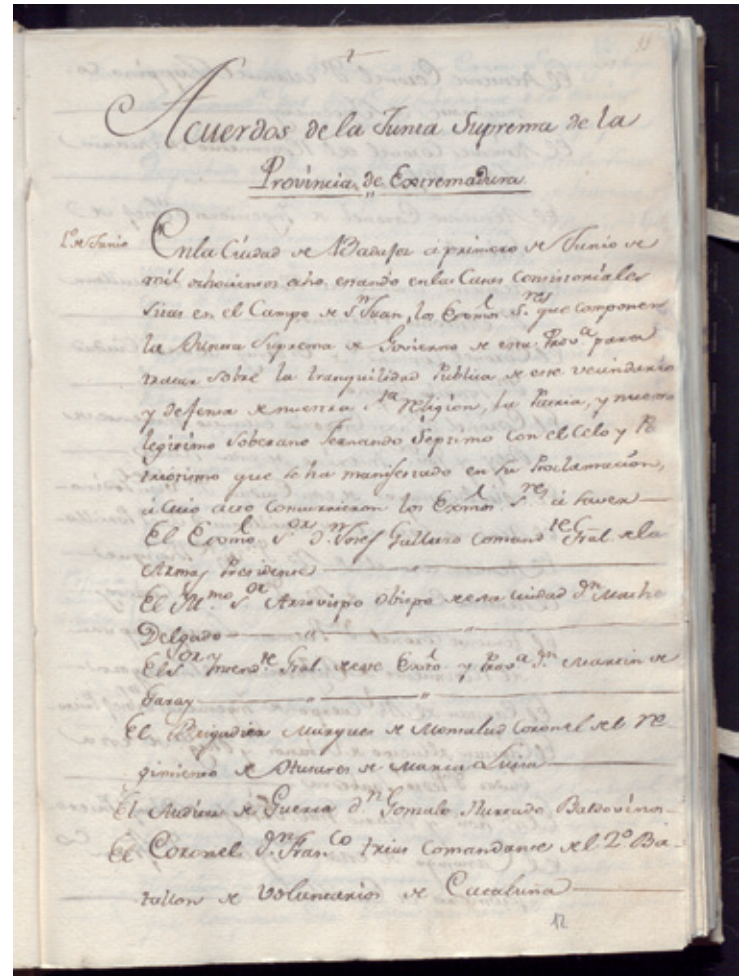 Acuerdos de la Junta Suprema de la
Provincia de Extremadura
1.º de Junio
En la Ciudad de Badajoz á primero de Junio de
mil ochocientos ocho, estando en las Casas Consistoriales
sitas en el Campo de Sn Juan, los Exmos. Sres que componen
la Junta Suprema de Govierno de esta Prova para
tratar sobre la tranquilidad Publica de este vecindario
y defensa de nuestra Sta religion, la Patria, y nuestro
legitimo soberano Fernando Septimo con el celo y Pa
triotismo que se ha manifestado en su Proclamacion,
á cuio acto concurrieron los Exmos. Sres á saver
El Exmo. Sor Dn Josef Galluzo Comandte Gral. de las
Armas Presidente
El Illmo Sor Arzovispo Obispo de esta ciudad Dn Matheo
Delgado
El Sor Intendte Gral. de este Exto y Prova Dn Martin de
Garay
El Brigadier Marques de Monsalud Coronel del Re-
gimiento de Husares de Maria Luisa
El Auditor de Guerra Dn Gonzalo Hurtado Valdovinos
El Coronel Dn Franco Trias Comandante del 2.º Ba-
tallon de Voluntarios de Cataluña
12